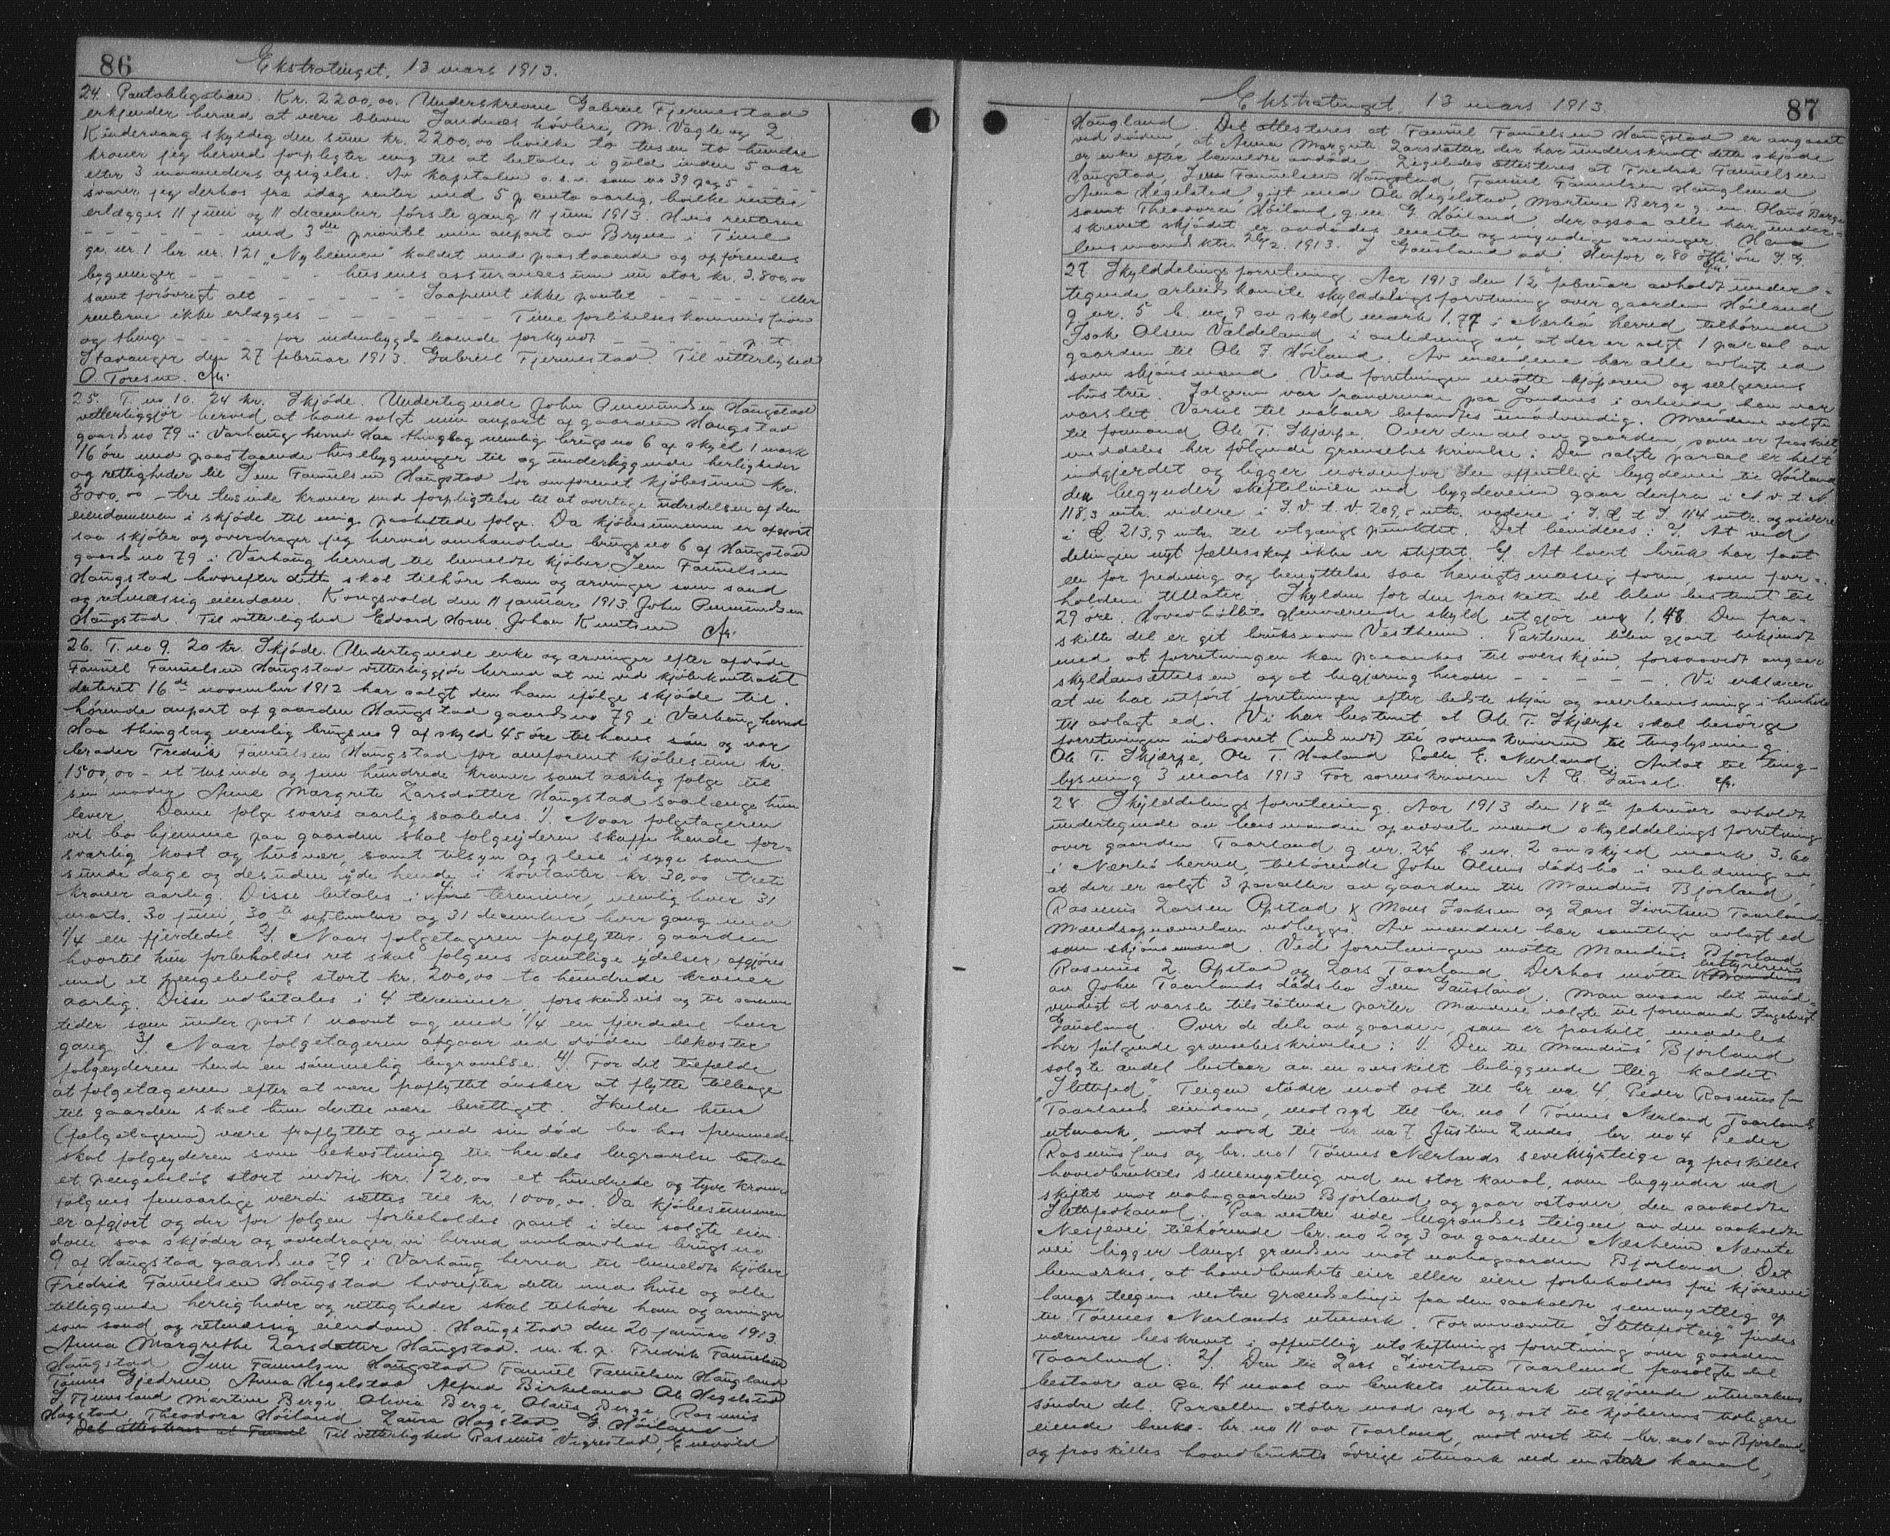 86
Ekstratinget, 13 mars 1913.
24. Pantobligation. Kr. 2200,00. Underskrevne Gabriel Fjermestad
erkjender herved at være bleven Sandnæs høvleri, M. Vagle og
Kindervaag skyldig den sum kr. 2200,00 hvilke to tusen to hundre
kroner jeg herved forpligter mig til at betale i guld inden 5 aar
efter 3 maaneders opsigelse. Av kapitalen o.s.v. som no 39 pag 5 - - -
svarer jeg derhos fra idag renter med 5 p cento aarlig, hvilke renter
erlægges 11 juni og 11 december første gang 11 juni 1913. Hvis renterne
- - - - - - med 3die prioritet min anpart av Bryne i Time
gr. nr. 1 br nr. 121 "Nyheimen" kaldet med paastaaende og opførendes
bygninger - - - - - husenes assurancesum nu stor kr. 3.800,00
samt forøvrigt alt - - - - - Saafremt ikke pantet - - - - - eller
renterne ikke erlægges - - - - - - Time forlikelseskommission
og thing - - - - for indenbygds boende forkyndt - - - - -
Stavanger den 27 februar 1913. Gabriel Fjermestad Til vitterlighed
O. Toresen.
25. T. no 10. 24 kr. Skjøde. Undertegnede John Omundsen Haugstad
vitterliggjør herved at have solgt min anpart af gaarden Haugstad
gaards no 79 i Varhaug herred Haa thinglag nemlig brugs no 6 af skyld 1 mark
16 øre med paastaaende husebygninger til og underliggende herligheder
og rettigheder til Jens Samuelsen Haugstad for omforenet kjøbesum kr.
3000,00 - tre tusinde kroner med forpligtelse til at overtage udredelsen af den
eiendommen i skjøde til mig paaheftede folge. Da kjøbesummen er afgjort
saa skjøter og overdrager jeg herved omhandlede brugs no 6 af Haugstad
gaards no 79 i Varhaug herred til bemeldte kjøber Jens Samuelsen
Haugstad hvorefter dette skal tilhøre ham og arvinger som sand
og retmæssig eiendom. Kongsvold den 11 januar 1913 John Omundsen
Haugstad. Til vitterlighed Edvard Horve. Johan Knutsen
26. T. no 9. 20 kr. Skjøde. Undertegnede enke og arvinger efter afdøde
Samuel Samuelsen Haugstad vitterliggjør herved at vi ved kjøbekontrakt
dateret 16de november 1912 har solgt den ham ifølge skjøde til-
hørende anpart af gaarden Haugstad gaards no 79 i Varhaug herred
Haa thinglag nemlig brugs no 9 af skyld 45 øre til hans søn og vor
broder Fredrik Samuelsen Haugstad for omforenet kjøbesum kr.
1500,00 - et tusinde og fem hundrede kroner samt aarlig folge til
sin moder Anne Margrete Larsdatter Haugstad saalænge hun
lever. Denne folge svares aarlig saaledes 1/ Naar folgetageren
vil bo hjemme paa gaarden skal folgeyderen skaffe hende for-
svarlig kost og husvær, samt tilsyn og pleie i syge som
sunde dage og desuden yde hende i kontanter kr. 30,00 treti
kroner aarlig. Disse betales i fire terminer, nemlig hver 31
marts, 30 juni, 30te september og 31 december hver gang med
1/4 en fjerdedel 2/. Naar folgetageren fraflytter gaarden
hvortil hun forbeholdes ret skal folgens samtlige ydelser afgjøres
med et pengebeløb stort kr. 200,00 to hundrede kroner
aarlig. Disse udbetales i 4 terminer, forskudsvis og til samme
tider som under post 1 nævnt og med 1/4 en fjerdedel hver
gang. 3/. Naar folgetageren afgaar ved døden bekoster
folgeyderen hende en sømmelig begravelse. 4/ For det tilfælde
at folgetageren efter at være fraflyttet ønsker at flytte tilbage
til gaarden skal hun dertil være berettiget. Skulde hun
(folgetageren) være fraflyttet og ved sin død bo hos fremmede
skal folgeyderen som bekostning til hendes begravelse betale
et pengebeløb stort indtil kr. 120,00 et hundrede og tyve kroner
Folgens femaarlige værdi sættes til kr. 1000,00. Da kjøbesummen
er afgjort og der for folgen forbeholdes pant i den solgte eien-
dom saa skjøder og overdrager vi herved omhandlede brugs no
9 af Haugstad gaards no 79 i Varhaug herred til bemeldte kjøber
Fredrik Samuelsen Haugstad hvorefter dette med huse og alle
tilliggende herligheder og rettigheder skal tilhøre ham og arvinger
som sand og retmæssig eiendom. Haugstad den 20 januar 1913
Anna Margrethe Larsdatter Haugstad. m. h. p. Fredrik Samuelsen
Haugstad, Jens Samuelsen Haugstad Samuel Samuelsen Haugland
Tønnes Gjedrem Anna Hegelstad Alfred Birkeland Ole Hegelstad
Martine Berge Olivia Berge, Olaus Berge Rasmus
Hogstad Theodora Høiland Laura Hogstad G Høiland
Det attesteres at Samuel Til vitterlighed Rasmus Vigrestad, Enevold
Ekstratinget 13 mars 1913.
87
Haugland. Det attesteres at Samuel Samuelsen Haugstad er avgaaet
ved døden, at Anna Margrete Larsdatter der har underskrevt dette skjøde
er enke efter bemeldte avdøde. Ligeledes attesteres at Fredrik Samuelsen
Haugstad, Jens Samuelsen Haugstad, Samuel Samuelsen Haugland,
Anna Hegelstad gift med Ole Hegelstad, Martine Berge g. m. Olaus Berge
samt Theodora Høiland g. m. G. Høiland, der ogsaa alle har under-
skrevet skjødet er avdødes eneste og myndige arvinger. Haa
lensmandsktr. 26/2 1913. J Gausland ad i Herfor 0,80 otti øre J. G.
27 Skylddelingsforretning Aar 1913 den 12 februar avholdt under-
tegnede arbeidskomite skylddelingsforretning over gaarden Høiland
g. nr. 5 b. nr. 9 av skyld mark 1.77 i Nærbø herred tilhørende
Isak Olsen Valdeland i anledning av at der er solgt 1 parcel av
gaarden til Ole J. Høiland. Av mændene har alle avlagt ed
som skjønsmænd. Ved forretningen møtte kjøperen og sælgerens
hustru. Sælgeren var paa Sandnes i arbeide, han var
varslet. Varsel til naboer befandtes unødvendig. Mændene valgte
til formand Ole T. Skjærpe. Over den del av gaarden, som er fraskilt
meddeles her følgende grænsebeskrivelse: Den solgte parcel er helt
indgjerdet og ligger nordenfor den offentlige bygdevei til Høiland,
den begynder skiftelinien ved bygdeveien gaar derfra i N v. t N
118,3 mtr. videre i S. v. t. v. 209,5 mtr. videre i S. Ø t S. 114 mtr. og videre
i Ø 213,9 mtr. til utgangspunktet. Det bevidnes: 1/. At ved
delingen nyt fællesskap ikke er stiftet. 2/. At hvert bruk har faat
en for fredning og benyttelse saa hensigtsmæssig form, som for-
holdene tillater. Skylden for den fraskilte del blev bestemt til
29 øre. Hovedbøllets gjenværende skyld utgjør mrk 1,48. Den fra-
skilte del er git bruksnavn Vestheim. Parterne blev gjort bekjendt
med at forretningen kan paaankes til overskjøn, forsaavidt angaar
skyldansættelsen og at begjæring herom - - - - - . Vi erklærer
at vi har utført forretningen efter bedste skjøn og overbevisning i henhold
til avlagt ed. Vi har bestemt at Ole T. Skjærpe skal besørge
forretningen indleveret (indsendt) til sorenskriveren til tinglysning.
Ole T. Skjærpe, Ole T. Haaland Colb. E. Nærland. Antat til ting-
lysning 3 marts 1913 For sorenskriveren A. E. Gausel.
28. Skylddelingsforretning. Aar 1913 den 18de februar avholdt
undertegnede av lensmanden opnævnte mænd skylddelingsforretning
over gaarden Taarland g. nr. 24 b. nr. 2 av skyld mark 3,60
i Nærbø herred, tilhørende John Olsens dødsbo i anledning av
at der er solgt 3 parceller av gaarden til Mandius Bjorland,
Rasmus Larsen Opstad & Mons Isaksen og Lars Sivertsen Taarland.
Mændsopnævnelsen vedlegges. Av mændene har samtlige avlagt ed
som skjønsmænd. Ved forretningen møtte Mandius Bjorland
Rasmus L Opstad og Lars Taarland. Derhos møtte bestyreren
av John Taarlands dødsbo Jens Gausland. Man ansaa det unød-
vendigt at varsle tilstøtende parter. Mændene valgte til formand Ingebrigt
Gausland. Over de dele av gaarden, som er fraskilt, meddeles
her følgende grænsebeskrivelse: 1/. Den til Mandius Bjorland
solgte andel bestaar av en særskilt beliggende teig kaldet
"Slettefed". Teigen støder mot ost til br. no. 4 Peder Rasmussen
Taarland eiendom, mot syd til br. no 1 Tønnes Nærland Taarlands
utmark, mot nord til br. no 7 Justine Lindes, br. no 4 Peder
Rasmussens og br. no 1 Tønnes Nærlands sevemyrteige og fraskilles
hovedbrukets semmyrteig ved en stor kanal, som begynder ved
skiftet mot nabogaarden Bjorland og gaar ostover, den saakaldte
Slettefedkanal. Paa vestre side begrændses teigen av den saakaldte
Nesjevei tilhørende br. no 2 og 3 av gaarden Næsheim. Nævnte
vei ligger langs grændsen mot nabogaarden Bjorland. Det
bemærkes, at hovedbrukets eier eller eiere forbeholdes fri kjørevei
langs teigens vestre grændselinje fra den saakaldte semmyrteig og
til Tønnes Nærlands utmark. Forannævnte "Slettefedteig" findes
nærmere beskrevet i offentlig utskiftningsforretning over gaarden
Taarland. 2/. Den til Lars Sivertsen Taarland frasolgte del
bestaar av ca. 4 maal av brukets utmark utgjørende utmarkens
søndre del. Parcellen støter mod syd og ost til kjøberens tidligere
eiende bruks- br. no 11 av Taarland, mot vest til br. no 1 av Bjorland
og fraskilles hovedbrukets øvrige utmark ved en stor kanal,